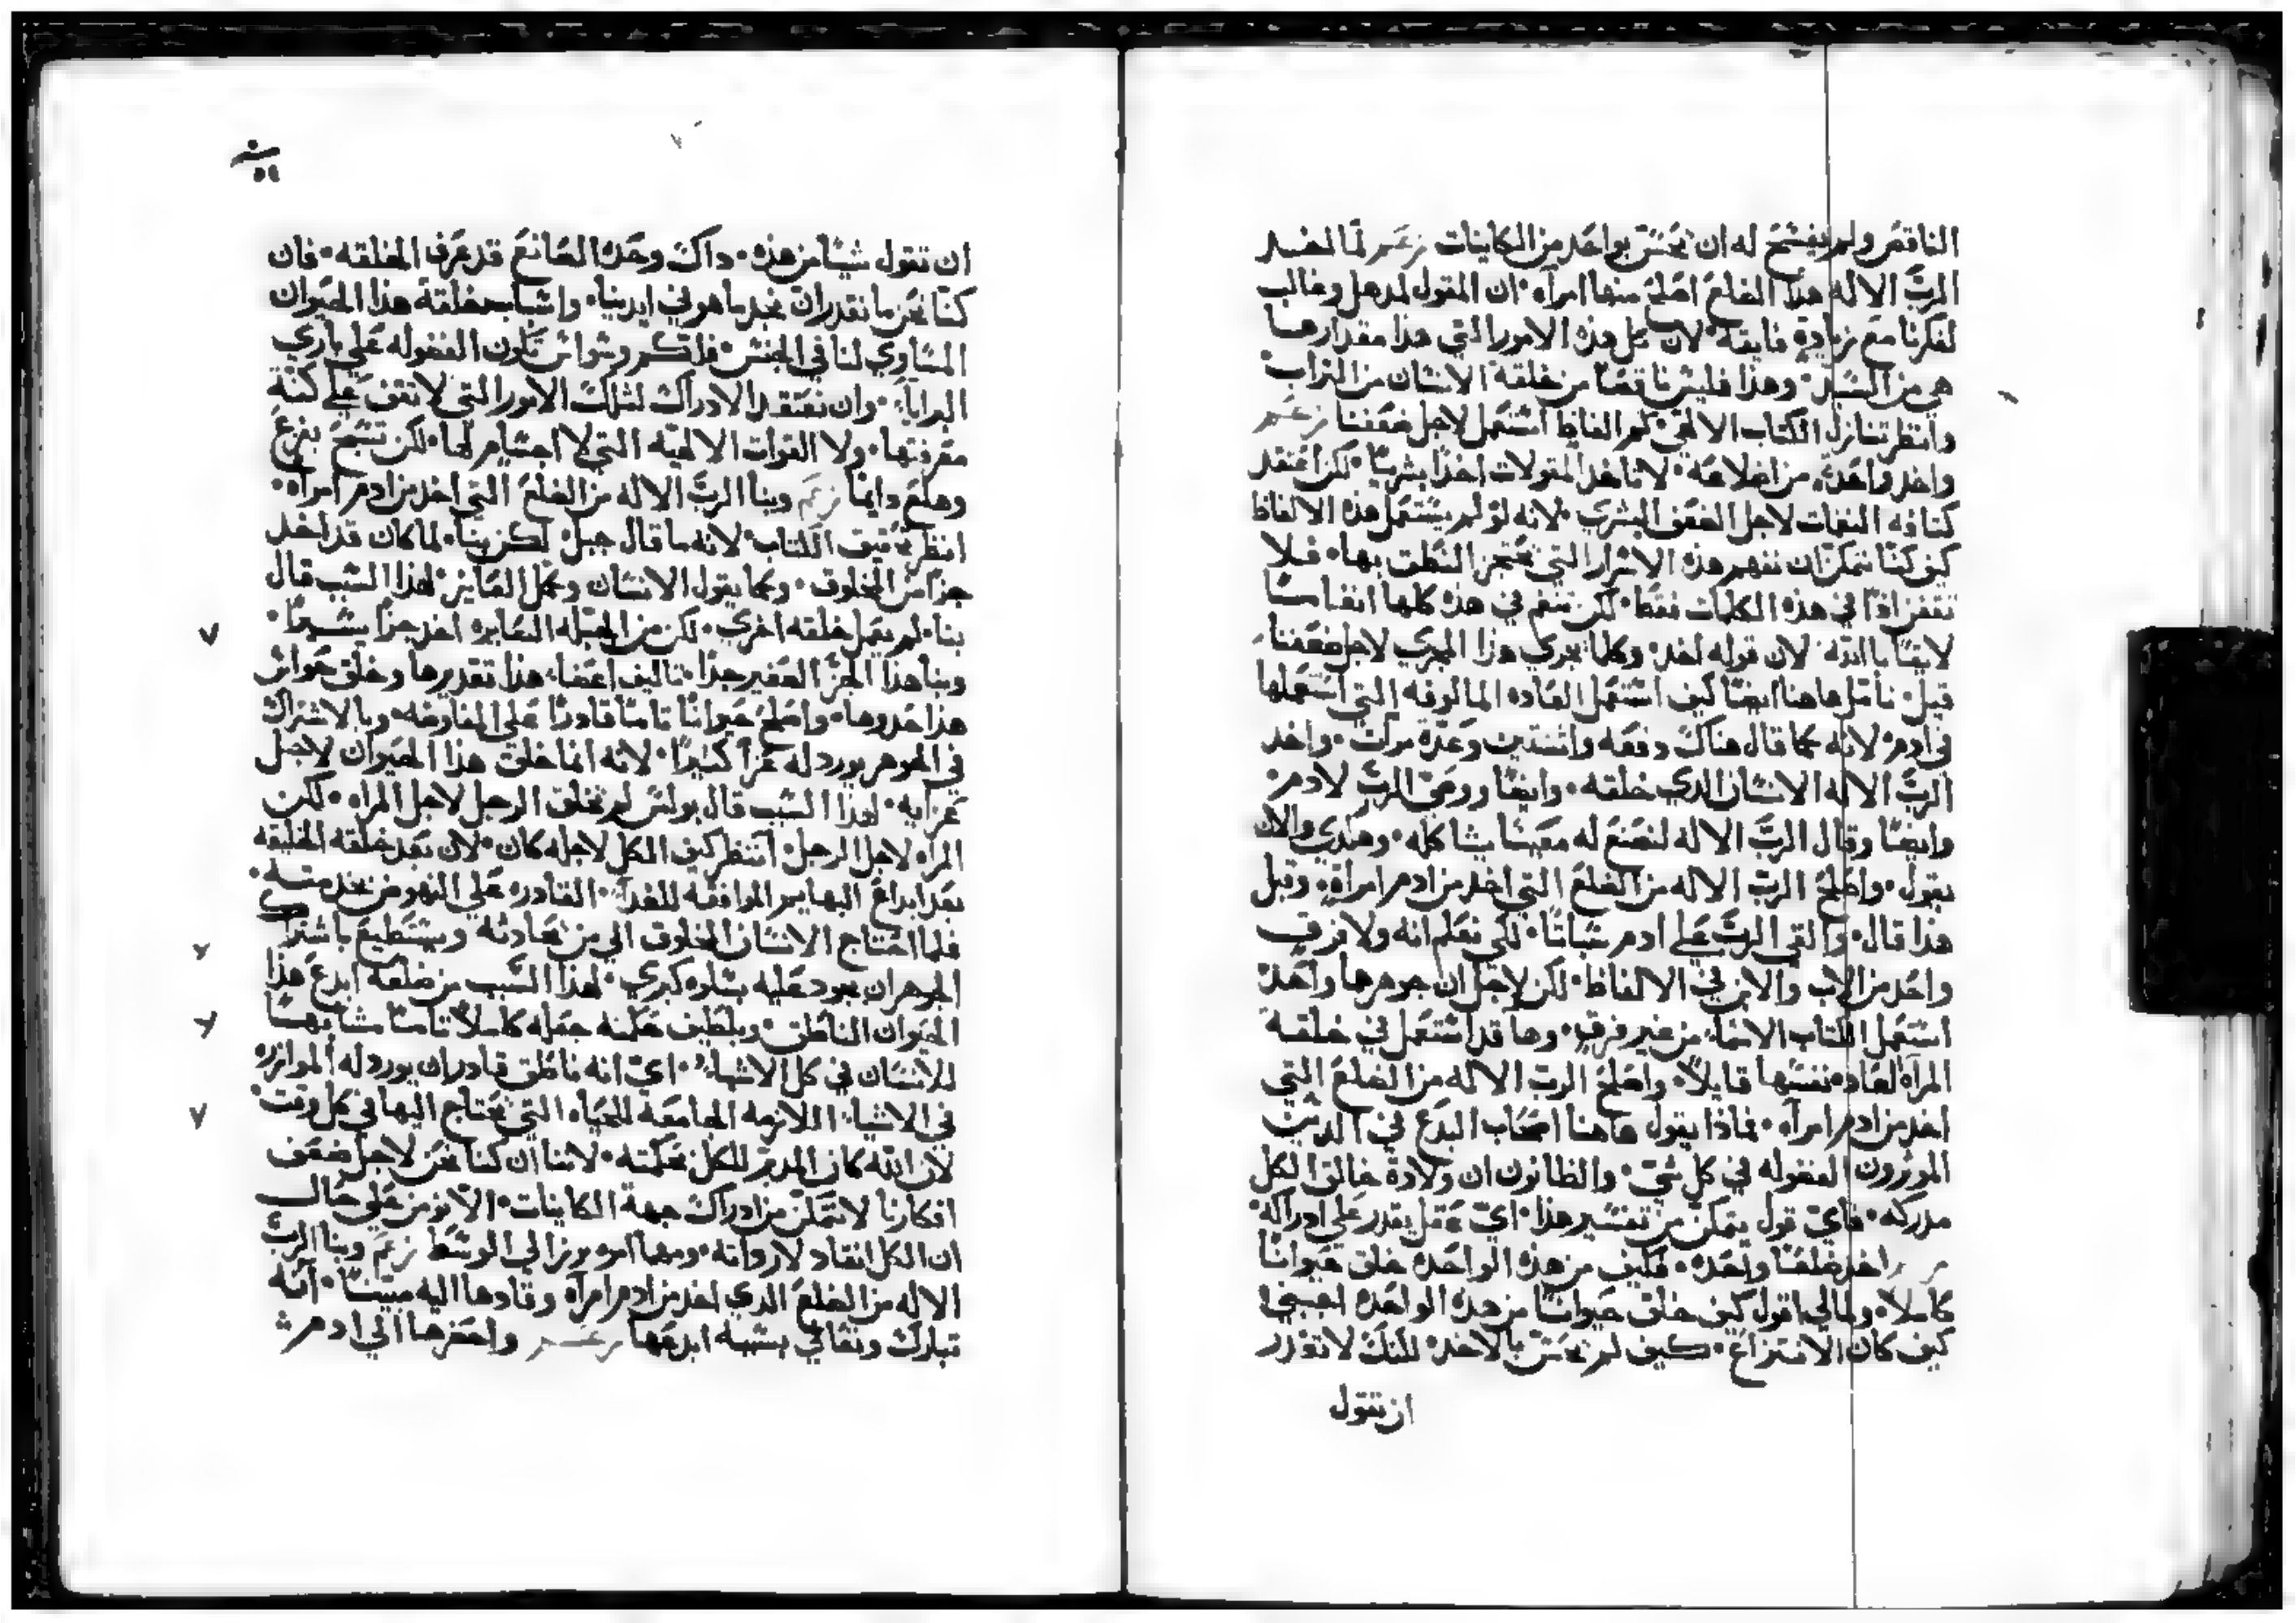 الناقص ولم يفسح له ان يحس بواحد من الكاينات زعم لما اخد
الرب الاله هذا الضلع اصلح منها امرآه ٠ ان المقول لمدهل وغالب
لفكرنا مع زيادة فايقه ٠ لان كل هذه الامور التي هذا مقدارها
هي من السيد ٠ وهذا فليس ناقصًا من خلقة الانسان من التراب ٠
وانظر تنازل الكتاب الالهي ٠ كم الفاظ استعمل لاجل ضعفنا زعم
واخد واحدة من اضلاعه ٠ لا تاخد المقولات اخدًا بشريًا ٠ لكن اعتقد
كثافة اللغات لاجل الضعف البشري ٠ لانه لو لم يستعمل هذه الالفاظ
كيف كنا نتمكن ان نفهم هذه الاسرار التي يعجز النطق بها ٠ فلا
نقفن اذًا في هذه الكلمات فقط ٠ لكن نفهم في هذه كلها انفاسًا
لايقًا بالله ٠ لان قوله اخد ٠ وكلما يجري هذا المجري لاجل ضعفنا
قيل ٠ تامل هاهنا ايضًا كيف استعمل العاده المالوفه التي استعملها
في ادم ٠ لانه كما قال هناك دفعه واثنتين وعدة مرات ٠ واخد
الرب الاله الانسان الدي خلقه ٠ وايضًا ووصي الرب لادم ٠
وايضًا وقال الرب الاله لنصنع له معينًا يشاكله ٠ وهكدي والان
يقول ٠ واصلح الرب الاله من الضلع التي اخد من ادم امراة ٠ وقبل
هذا قال ٠ والقي الرب علي ادم سباتًا ٠ لكي نعلم انه ولا فرق
واحد من الاب والابن في الالفاظ ٠ لكن لاجل ان جوهرها واحد
استعمل الكتاب الاسما من غير فرق ٠ وها قد استعمل في خلقة
المرآه العاده نفسها قايلًا ٠ واصلح الرب الاله من الضلع التي
اخد من ادم امرآه ٠ فماذا يقول هاهنا اصحاب البدع في الدين
الموثرون الفضوله في كل شي ٠ والظانون ان ولادة خالق الكل
مدركه ٠ فاي قول يتمكن من تفسير هذا ٠ اي عقل يقدر علي ادراكه ٠
اخد ضلعًا واحده ٠ فكيف من هذه الواحده خلق حيوانًا
كاملًا ٠ ومالي اقول كيف خلق حيوانًا من هذه الواحده اجبني
كيف كان الانتزاع ٠ كيف لم يحس بالاخد ٠ لكنك لا تقدر
ان تقول
ان تقول شيًا من هذه ٠ داك وحده الصانع قد عرف الخلقه ٠ فان
كنا نحن ما نقدر ان نجد ما هو في ايدينا ٠ واسباب خلقة هذا الحيوان
المساوي لنا في الجنس ٠ فلكم وسواس تكون الفضوله علي باري
البرايا ٠ وان نعتقد الادراك لتلك الامور التي لا تقف علي كنه
معرفتها ٠ ولا القوات الالهيه التي لا اجسام لها ٠ لكن تسبح بفزع
وهلع دايمًا زعم وبنا الرب الاله من الضلع التي اخد من ادم امرآه ٠
انظر تحقيق الكتاب ٠ لانه ما قال جبل ٠ لكن بنا ٠ لما كان قد اخد
جزًا من المخلوق ٠ وكما يقول الانسان وكل الفايز ٠ لهذا السبب قال
بنا ٠ لم يعمل خلقه اخري ٠ لكن من الجبله الصايره اخد جزًا يسيرًا ٠
وبنا هذا الجز الحقير جدًا ٠ تاليف اعضا هذا تقديرها وخلق حواس
هذا حدودها ٠ واصلح حيوانًا تامًا قادرًا علي المفاوضه وبالاشتراك
في الجوهر يورد له عزآ كثيرًا ٠ لانه انما خلق هذا الحيوان لاجل
عزايه ٠ لهذا السبب قال بولس لم يخلق الرجل لاجل المراه ٠ لكن
المراه لاجل الرجل ٠ انتظر كيف الكل لاجله كان ٠ لان بعد خلقة الخليقه
بعد ابداع البهايم الموافقه للغدآ ٠ القادره علي النهوض بخدمته ٠
فلما احتاج الانسان المخلوق الي من يحادثه ويستطيع باشتراك
الجوهر ان يجود عليه بسلوه كبري ٠ لهذا السبب من ضلعه ابدع هذا
الحيوان الناطق ٠ وبلطيف حكمته جعله كاملًا تامًا مشابهًا
للانسان في كل الاشيا ٠ اي انه ناطق قادر ان يورد له الموازره
في الاشيا اللازمه الجامعه للحياه التي يحتاج اليها في كل وقت ٠
لان الله كان المدبر للكل بحكمته ٠ لاننا ان كنا نحن لاجل ضعف
افكارنا لا نتمكن من ادراك جهة الكاينات ٠ الا نومن علي حال
ان الكل انقاد لارداته ٠ ومهما امره برز الي الوسط زعم وبنا الرب
الاله من الضلع الدي اخد من ادم امرآه وقادها اليه مبينًا ٠ انه
تبارك وتعالي بسببه ابدعها زعم واحضرها الي ادم ٠